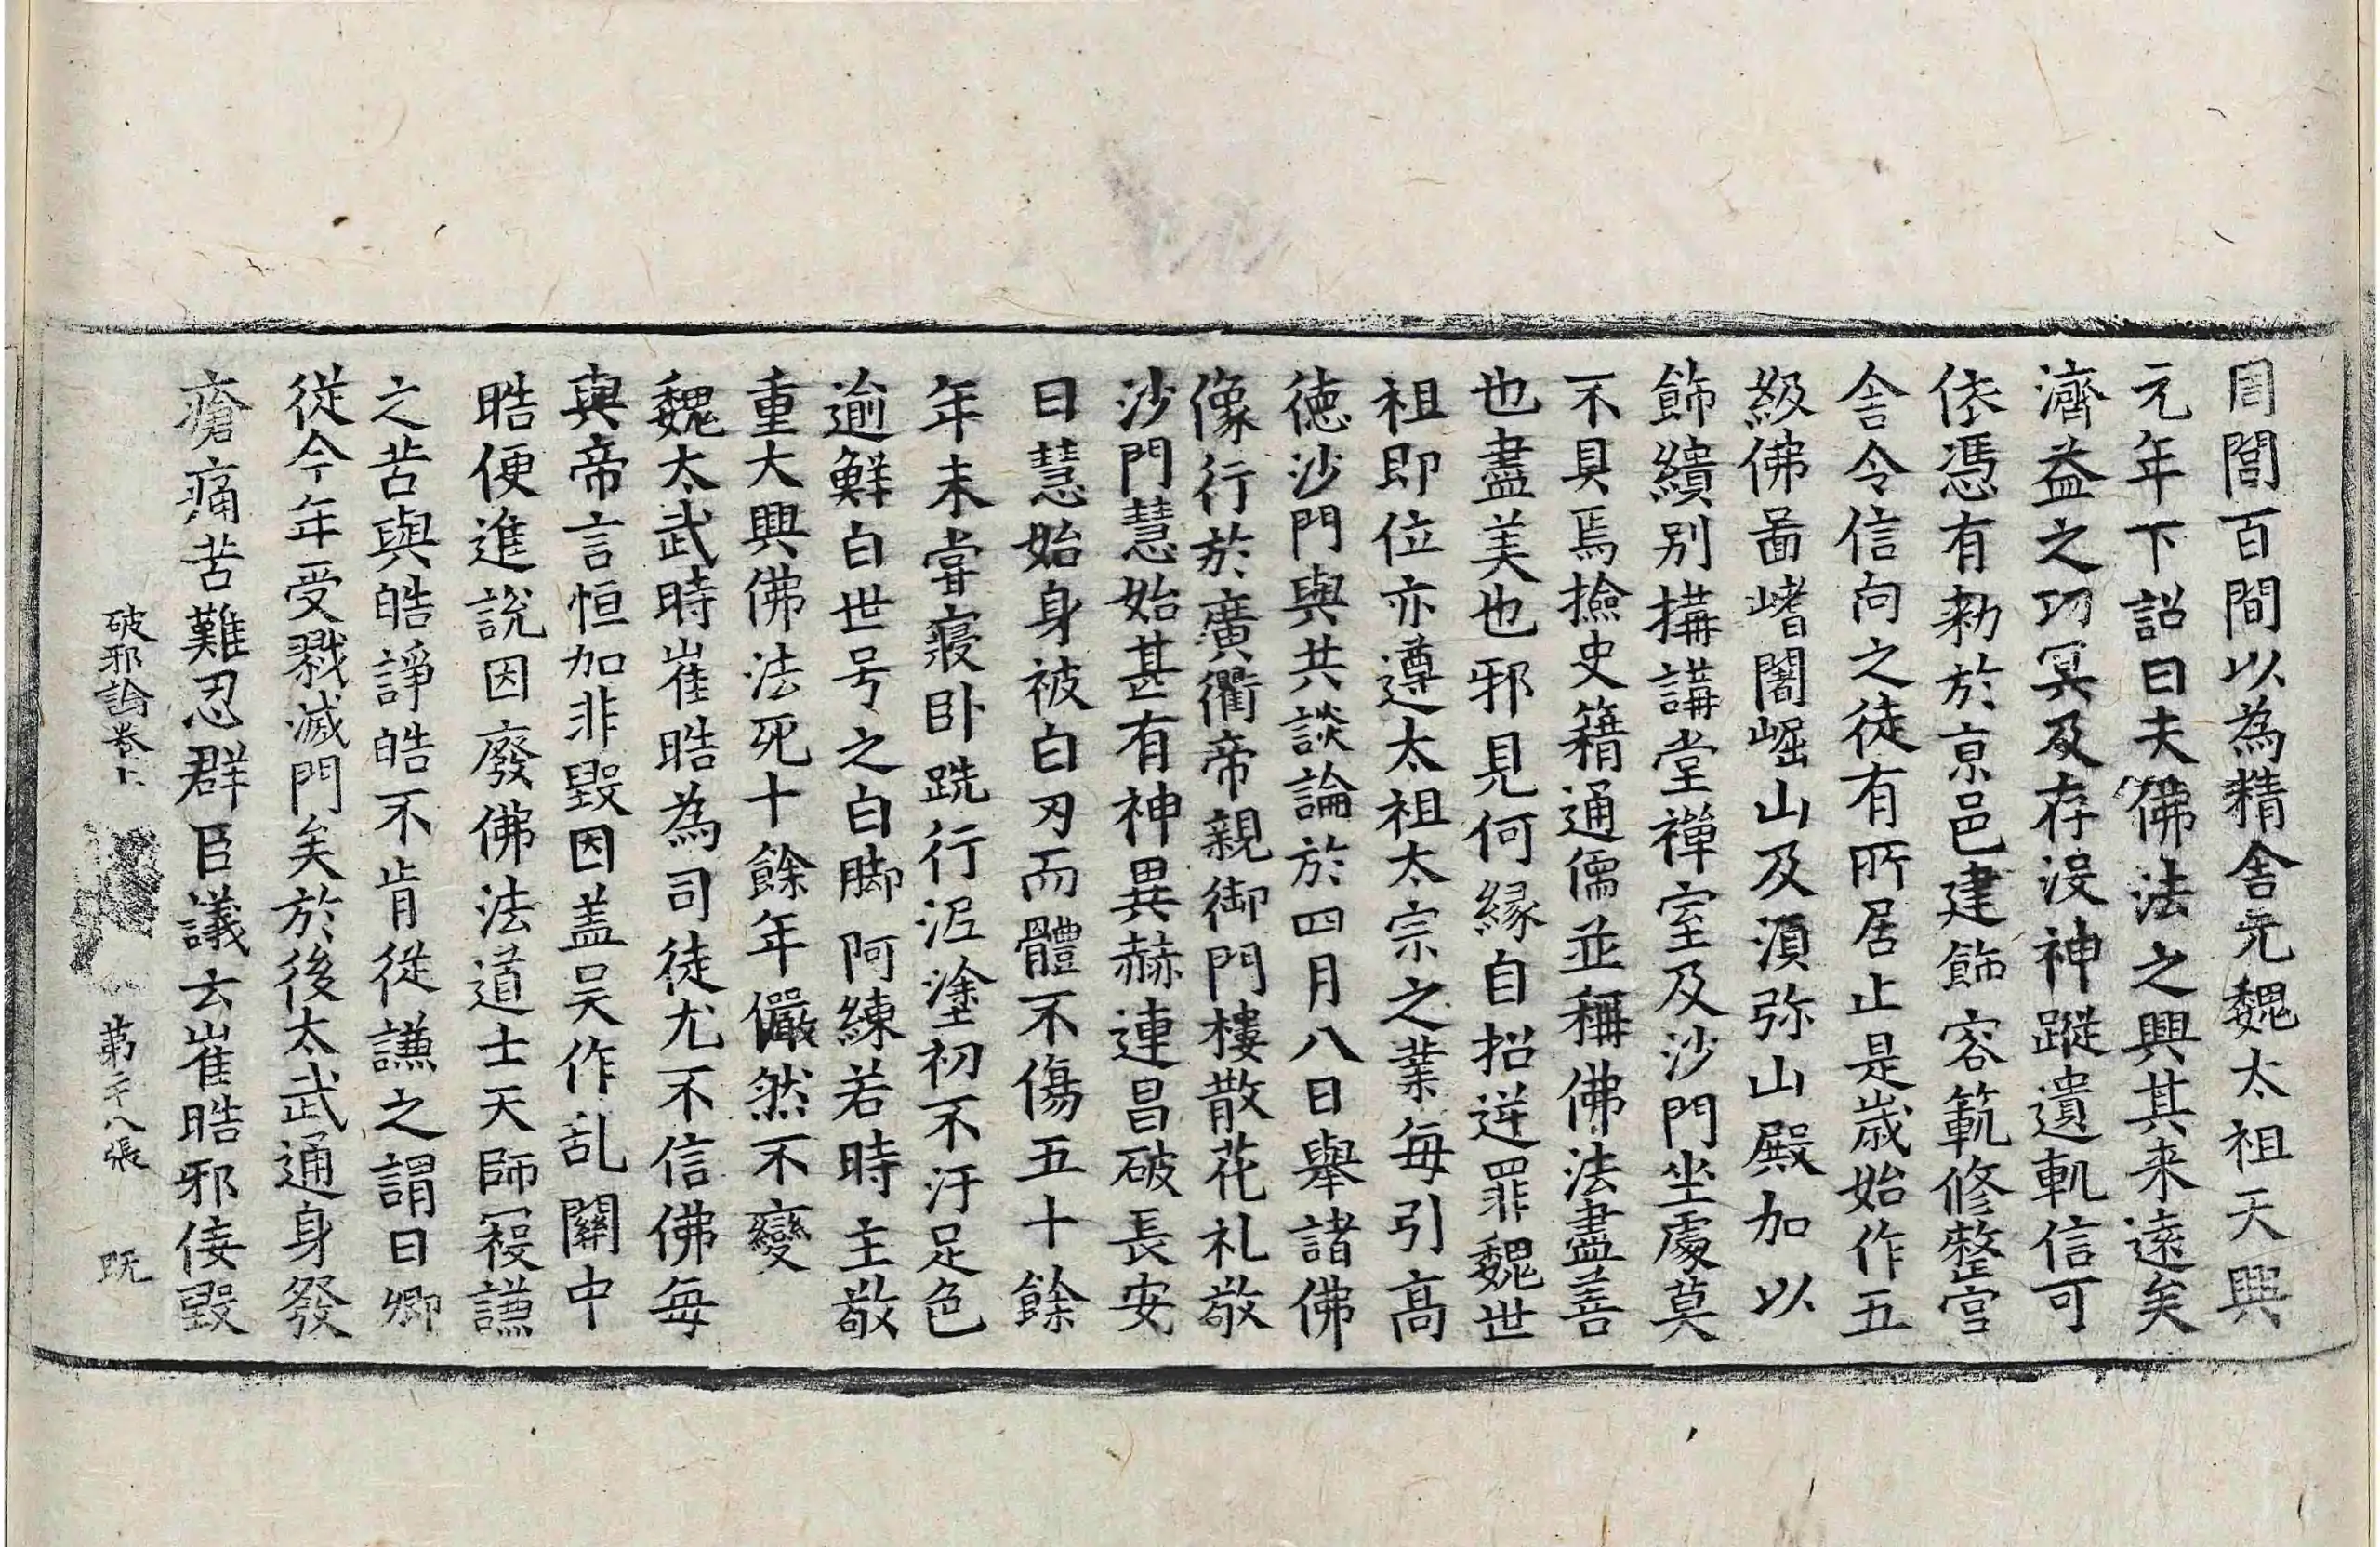 周閭百間以為精舍元魏太祖天興
元年下詔曰夫佛法之興其来遠矣
濟益之功冥及存没神蹤遺軌信可
依憑有勑於京邑建飾容範修整宫
舍令信向之徒有所居止是歳始作五
級佛啚嶆闍崛山及湏弥山殿加以
飾繢别搆講堂禪室及沙門坐處莫
不具焉撿史籍通儒並稱佛法盡善
也盡美也邪見何縁自招逆罪魏世
祖即位亦遵太祖太宗之業每引高
徳沙門與共談論於四月八日舉諸佛
像行於廣衢帝親御門樓散花礼敬
沙門慧始甚有神異赫連昌破長安
日慧始身被白刃而體不傷五十餘
年未甞寢卧跣行泥塗初不汙足色
逾鮮白世号之白脚阿練若時主敬
重大興佛法死十餘年儼然不變
魏太武時崔晧為司徒尤不信佛每
與帝言恒加非毀因盖吴作乱關中
晧便進説因廢佛法道士天師㓂謙
之苦與皓諍皓不肯從謙之謂曰卿
從今年受戮滅門矣於後太武通身發
瘡痛苦難忍群臣議云崔晧邪佞毀
破邪論卷上 第十八張 既